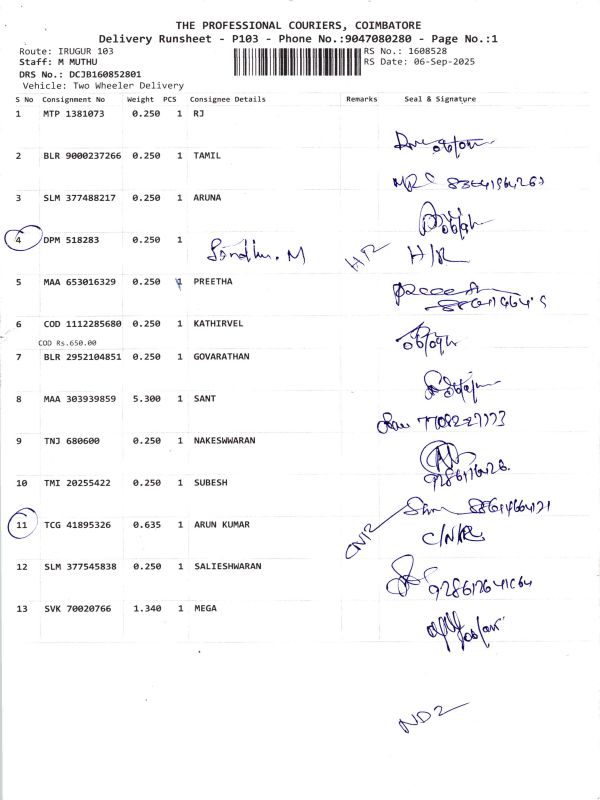 THE PROFESSIONAL COURIERS, COIMBATORE
Delivery Runsheet - P103 - Phone No.:9047080280 - Page No.:1
Route: IRUGUR 103 RS No.: 1608528
Staff: M MUTHU RS Date: 06-Sep-2025
DRS No.: DCJB160852801
Vehicle: Two Wheeler Delivery
S No Consignment No Weight PCS Consignee Details Remarks Seal & Signature
1 MTP 1381073 0.250 1 RJ
2 BLR 9000237266 0.250 1 TAMIL
3 SLM 377488217 0.250 1 ARUNA
4 DPM 518283 0.250 1 Sindhu. M H/R
5 MAA 653016329 0.250 1 PREETHA
6 COD 1112285680 0.250 1 KATHIRVEL
COD Rs.650.00
7 BLR 2952104851 0.250 1 GOVARATHAN
8 MAA 303939859 5.300 1 SANT
9 TNJ 680600 0.250 1 NAKESWWARAN
10 TMI 20255422 0.250 1 SUBESH
11 TCG 41895326 0.635 1 ARUN KUMAR
12 SLM 377545838 0.250 1 SALIESHWARAN
13 SVK 70020766 1.340 1 MEGA
ND2